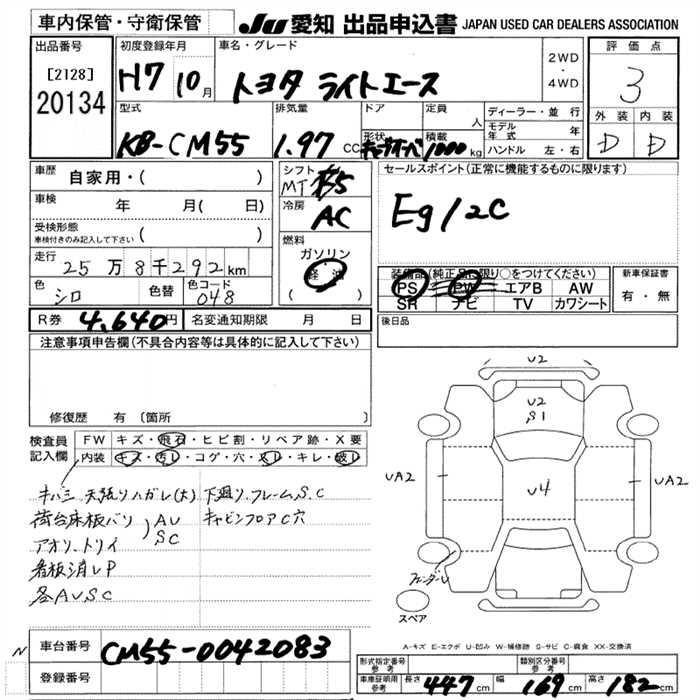 車内保管・守衛保管
JU 愛知 出品申込書 JAPAN USED CAR DEALERS ASSOCIATION
出品番号
[2128]
20134
初度登録年月
H7 10月
車名・グレード
トヨタ ライトエース
2WD
・
4WD
評価点
3
型式
KB-CM55
排気量
1.97 CC
ドア
形状
定員
人
積載
1000 kg
ディーラー・並行
モデル年式 年
ハンドル 左・右
外装 内装
D D
車歴
自家用・( )
車検 年 月( 日)
受検形態
車検付きのみ記入して下さい ( )
走行
25万8千292km
色
シロ
色替
色コード
048
シフト
MT 5
冷房
AC
燃料
ガソリン
軽油
( )
セールスポイント(正常に機能するものに限ります)
Eg/2C
装備品(純正品に限り○をつけてください)
PS PW エアB AW
SR ナビ TV カワシート
新車保証書
有・無
R券 4,640円
名変通知期限 月 日
後日品
注意事項申告欄(不具合内容等は具体的に記入して下さい)
修復歴 有〔箇所 〕
検査員記入欄
FW キズ・飛石・ヒビ割・リペア跡・X要
内装 キズ・汚レ・コゲ・穴・スレ・キレ・破レ
キバミ 天張りハガレ(大) 下廻り、フレームS.C
荷台床板バリ
アオリ、トリイ
AU
SC
キャビンフロアC穴
看板消しP
各AU,SC
U2
U2
S1
U4
UA2
UA2
フェンダーU
スペア
A-キズ E-エクボ U-凹み W-補修跡 S-サビ C-腐食 XX-交換済
N
車台番号 CM55-0042083
登録番号
形式指定番号 参考
類別区分番号 参考
車庫証明用 参考
長さ 447cm
幅 169cm
高さ 182cm